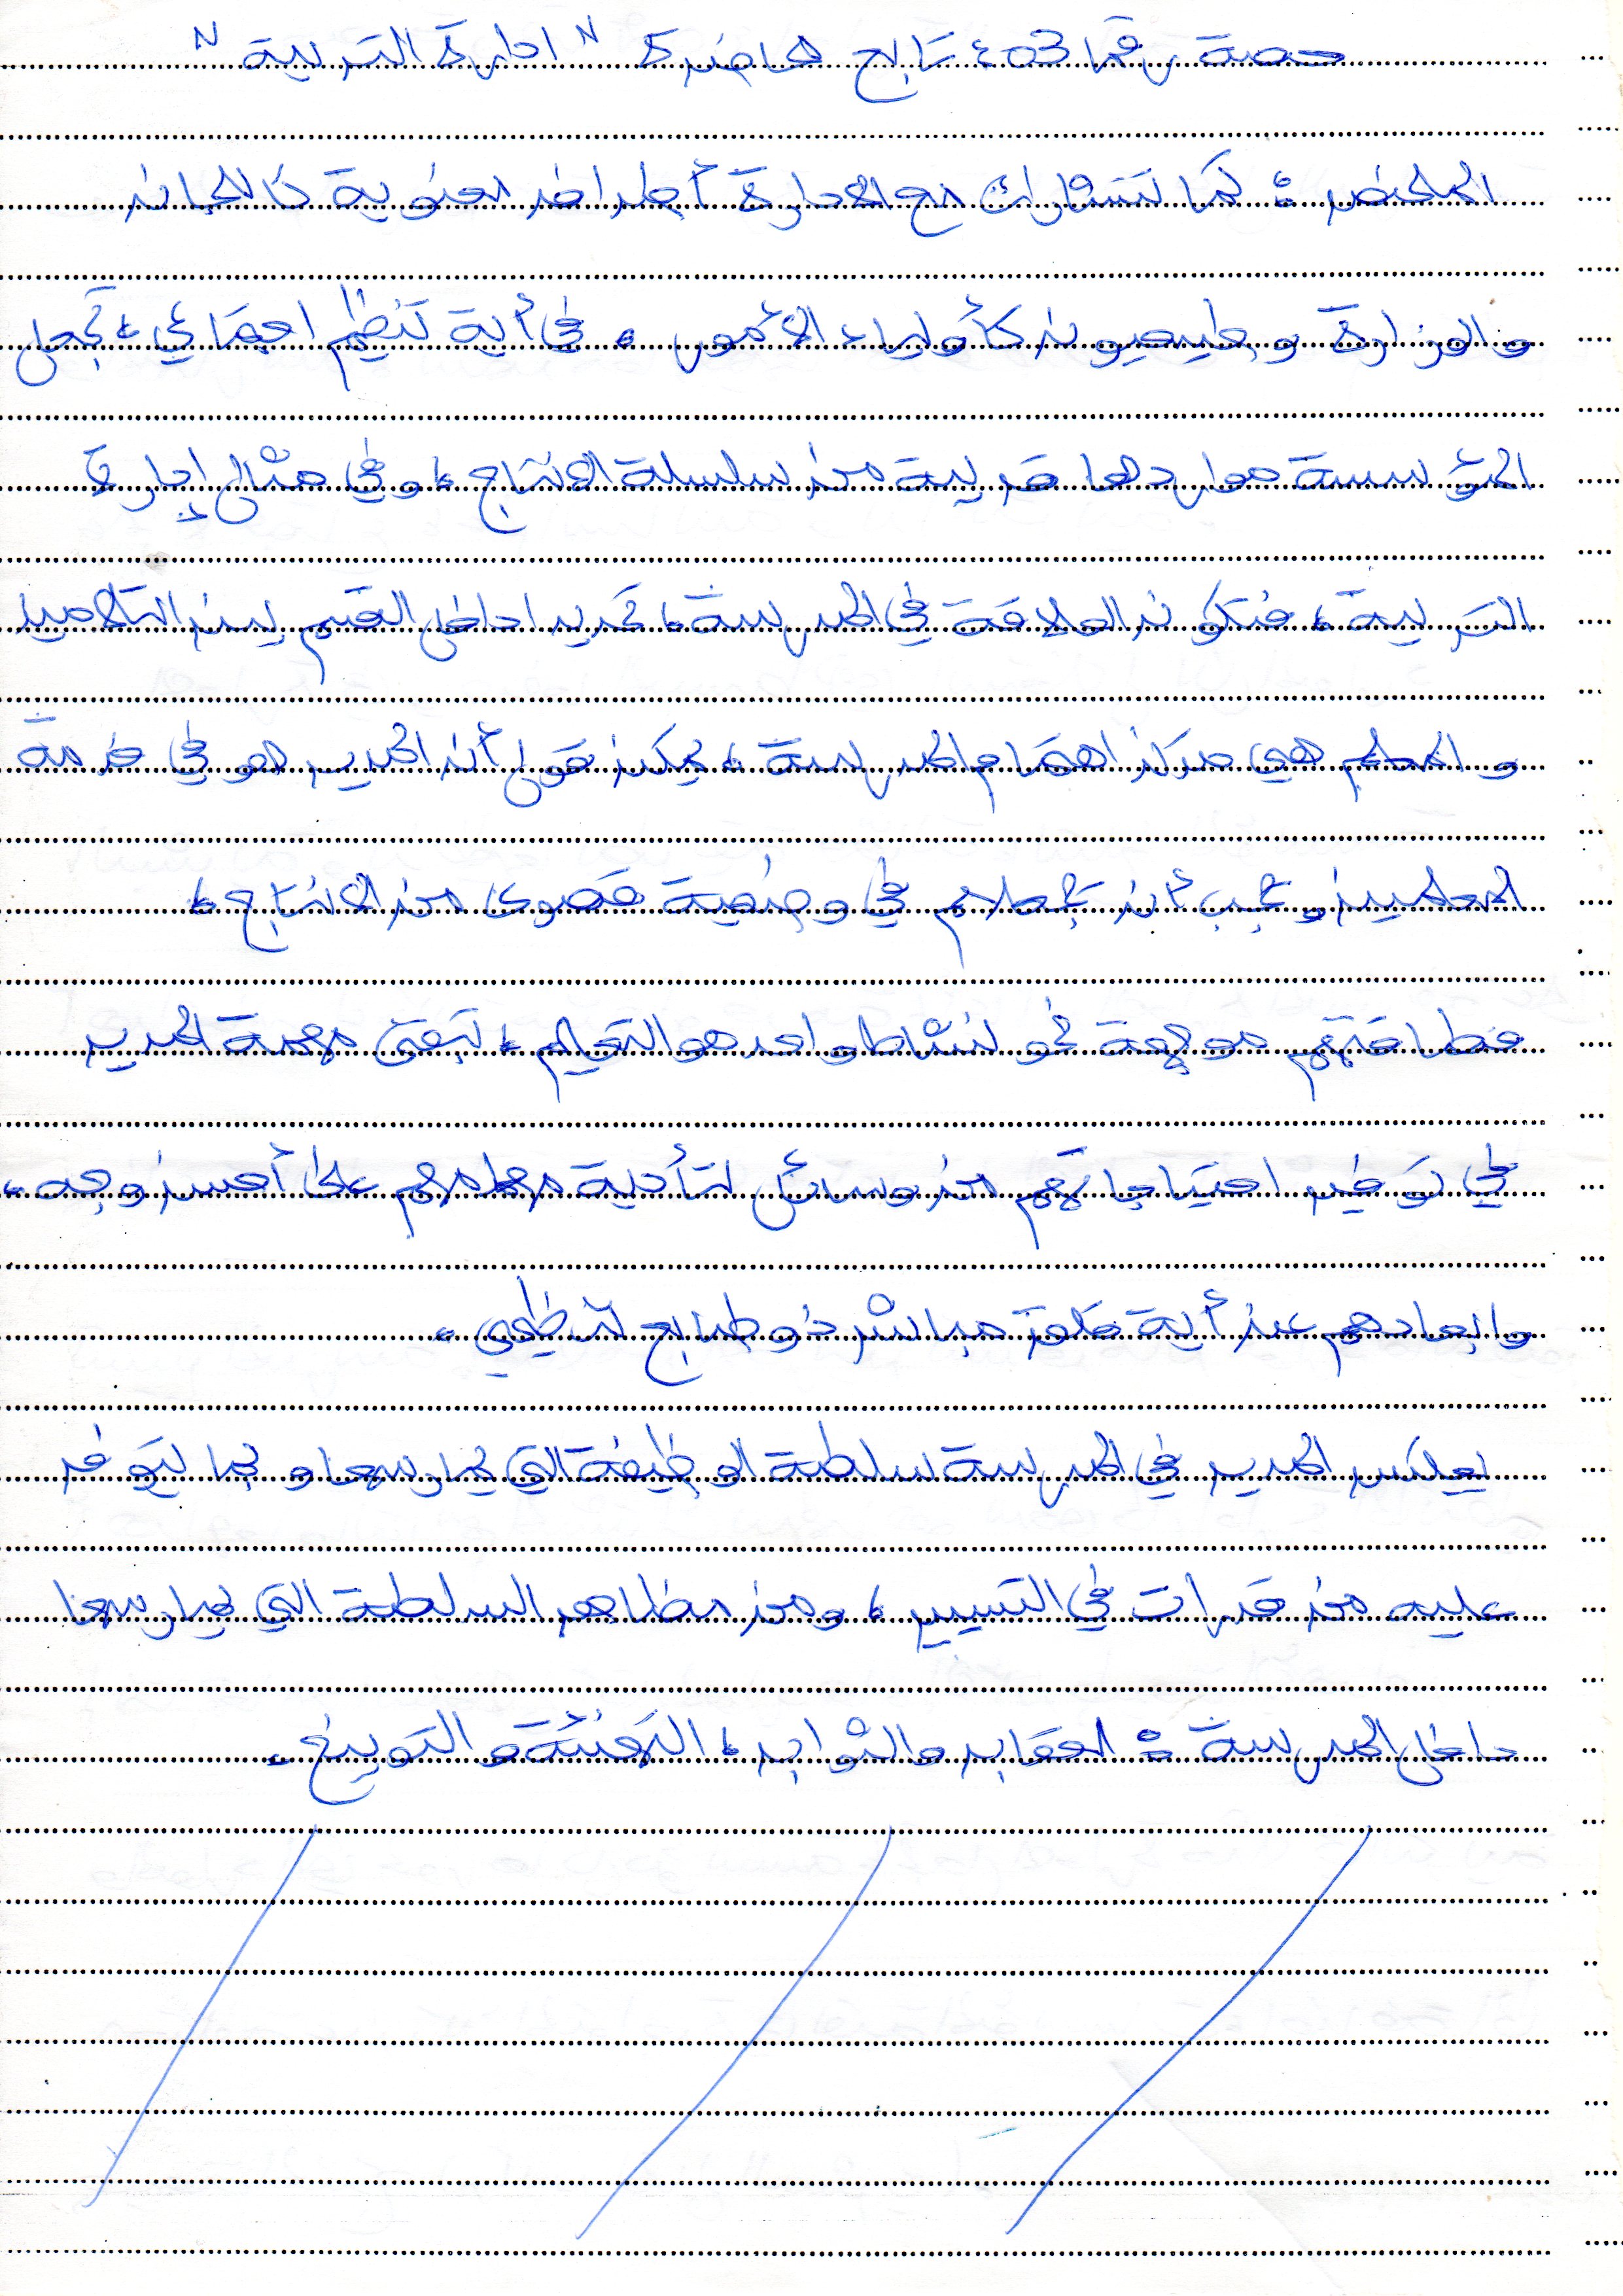 حصة رقم 03: تابع محاضرة " ادارة التربية "
الملخص : كما تتشارك مع الادارة أطراف معنوية كاللجان
والوزارة وطبيعيون كأولياء الأمور، في أية تنظيم اجتماعي، تجعل
المؤسسة مواردها قريبة من سلسلة الانتاج، وفي مثال إدارة
التربية، فتكون العلاقة في المدرسة، تحديدا داخل القسم بين التلاميذ
و المعلم هي مركز اهتمام المدرسة، يمكن قول أن المدير هو في خدمة
المعلمين و يجب أن تجعلهم في وضعية قصوى من الانتاج،
فطاقتهم موجهة نحو نشاط واحد هو التعليم، تبقى مهمة المدير
في توفير احتياجاتهم من وسائل لتأدية مهامهم على أحسن وجه،
وابعادهم عن أية مباشر ذو طابع تنظيمي.
يعكس المدير في المدرسة سلطة الوظيفة التي يمارسها و بما يتوفر
عليه من قدرات في التسيير، ومن مظاهر السلطة التي يمارسها
داخل المدرسة : العقاب والثواب، التهنئة و التوبيخ.